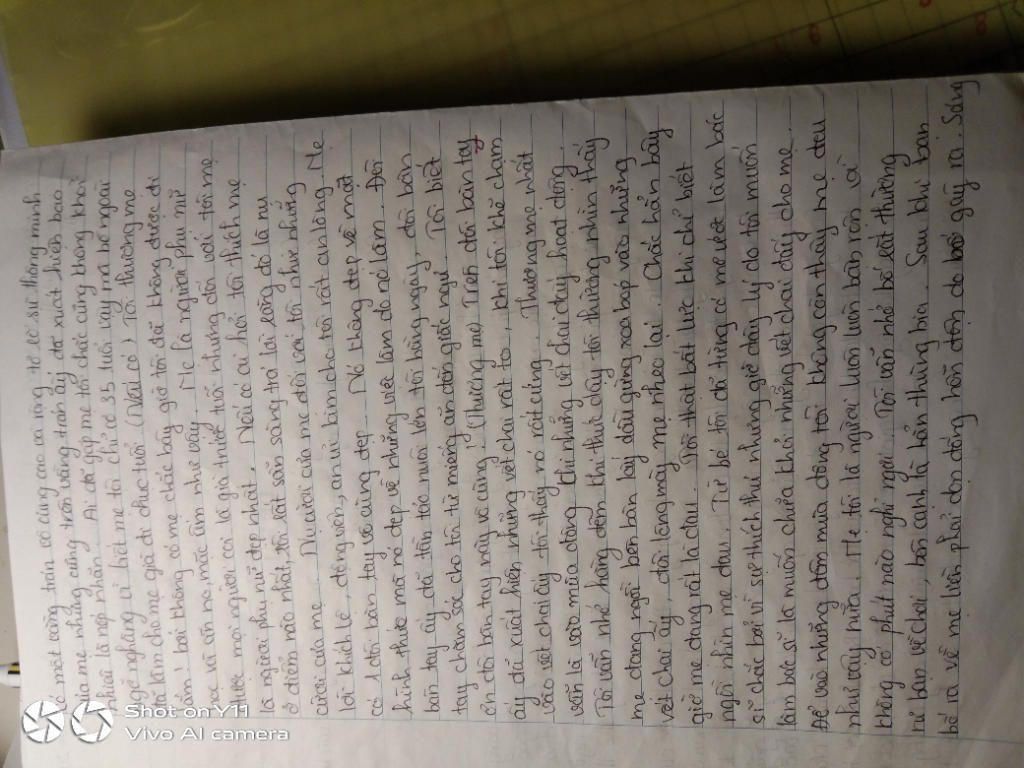 có một vầng trán vô cùng cao và rộng tỏ rõ sự thông minh
của mẹ nhưng cũng trên vầng trán ấy đã xuất hiện bao
nhiêu là nếp nhăn. Ai đã gặp mẹ tôi chắc cũng không khỏi
ngỡ ngàng vì biết mẹ tôi chỉ có 35 tuổi vậy mà bề ngoài
đã làm cho mẹ già đi chục tuổi. (Nếu có) Tôi thương mẹ
lắm! bởi không có mẹ chắc bây giờ tôi đã không được đi
học và ăn no mặc ấm như vậy. Mẹ là người phụ nữ
được mọi người coi là già trước tuổi nhưng đối với tôi mẹ
là người phụ nữ đẹp nhất. Nếu có ai hỏi tôi thích mẹ
ở điểm nào nhất, tôi rất sẵn sàng trả lời rằng đó là nụ
cười của mẹ. Nụ cười của mẹ đối với tôi như những
lời khích lệ, động viên, an ủi làm cho tôi rất an lòng. Mẹ
có 1 đôi bàn tay vô cùng đẹp. Nó không đẹp về mặt
hình thức mà nó đẹp về những việc làm do nó làm. Đôi
bàn tay ấy đã tần tảo nuôi lớn tôi hằng ngày, đôi bàn
tay chăm sóc cho tôi từ miếng ăn đến giấc ngủ. Tôi biết
ơn đôi bàn tay này vô cùng! (Thương mẹ) Trên đôi bàn tay
ấy đã xuất hiện những vết chai rất to, khi tôi khẽ chạm
vào vết chai ấy tôi thấy nó rất cứng. Thương mẹ nhất
vẫn là vào mùa đông khi những vết chai dày hoạt động.
Tôi vẫn nhớ hằng đêm khi thức dậy tôi thường nhìn thấy
mẹ đang ngồi bên bàn lấy dầu gừng xoa bóp vào những
vết chai ấy, đôi lông mày mẹ nheo lại. Chắc hẳn bây
giờ mẹ đang rất là đau. Tôi thật bất lực khi chỉ biết
ngồi nhìn mẹ đau. Từ bé tôi đã từng có mơ ước làm bác
sĩ chắc bởi vì sự thích thú nhưng giờ đây lý do tôi muốn
làm bác sĩ là muốn chữa khỏi những vết chai dày cho mẹ.
Để vào những đêm mùa đông tôi không còn thấy mẹ đau
như vậy nữa. Mẹ tôi là người luôn luôn bận rộn và
không có phút nào nghỉ ngơi. Tôi vẫn nhớ bố tôi thường
rủ bạn về chơi, bên cạnh là hẳn thùng bia. Sau khi bạn
bố ra về mẹ liền phải dọn đống hỗn độn do bố gây ra. Sáng
Shot on Y11
Vivo AI camera